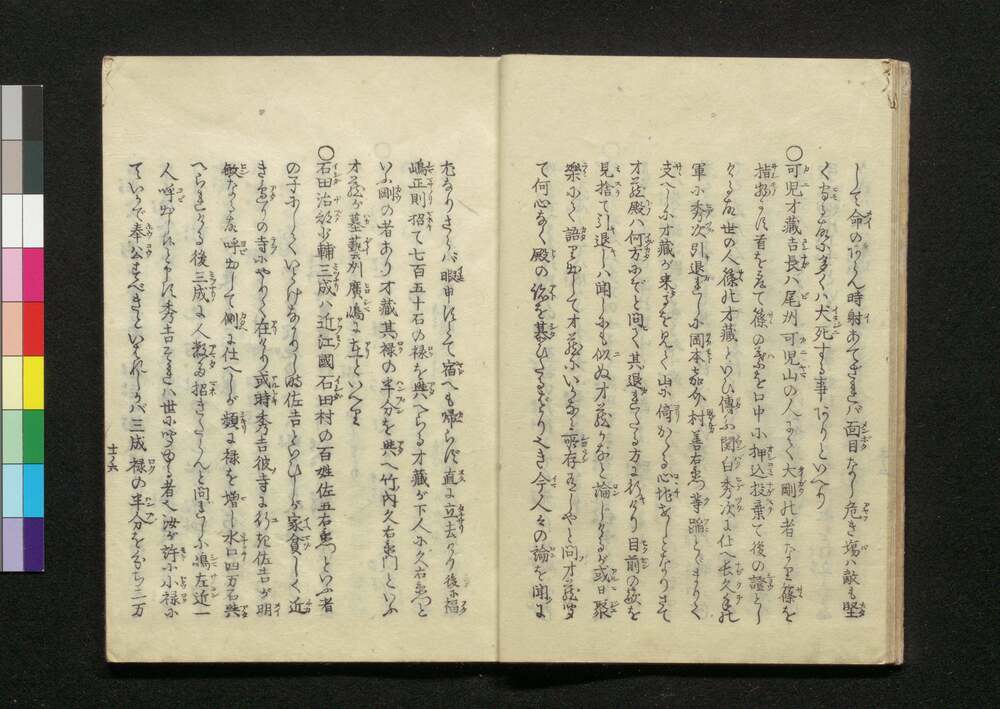 して命のほどん時射あてざれバ面目なし危き場ハ敵も堅
くなる故に多くハ犬死する事ありといへり
〇可児才蔵吉長ハ尾州可児山の人にて大剛の者なり篠を
指物にし首を取て篠の葉を口中に押込投棄て後の證とし
ける故世の人篠の才蔵といひ傳ふ関白秀次に仕へ長久手の
軍に秀次引退れしに岡本嘉介村善右衛門等踏とゞまりて
支へしに才蔵が来るを見て山に倚かゝる心地せしとなりさて
才蔵殿ハ何方にぞと問て其退きたる方に行かり目前の敵を
見捨て引退しハ聞しにも似ぬ才蔵かなと論じけるが或日聚
樂にて語り出して才蔵にいかなる所存有しやと問才蔵聞
て何心なく殿の跡を慕ひたるばかりなりき今人々の論を聞に
尤なりさらバ暇申すとて宿へも帰らず直に立去けり後に福
嶋正則招て七百五十石の禄を與へらる才蔵が下人に久右衛門と
いふ剛の者あり才蔵其禄の半分を與へ竹内久右衛門といふ
才蔵が墓藝州廣嶋に在といへり
〇石田治部少輔三成ハ近江國石田村の百姓佐五右衛門といふ者
の子にしていとけなかりし時佐吉といひしが家貧しく近
きあたりの寺にやりて在けり或時秀吉彼寺に行れ佐吉が明
敏なる故呼出して側に仕へしが頻に禄を増し水口四万石與
へられける後三成に人数多招きたらんと問れしに嶋左近一
人呼出し候と申す秀吉それハ世に聞ゆる者也汝が許に小禄に
ていかで奉公すべきといはれしかバ三成禄の半分を分ち二万